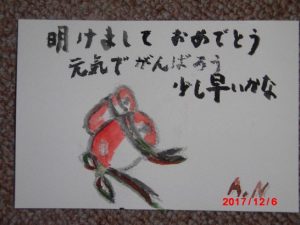 明けまして おめでとう
元気で がんばろう
少し早いかな
A.N
2017/12/6